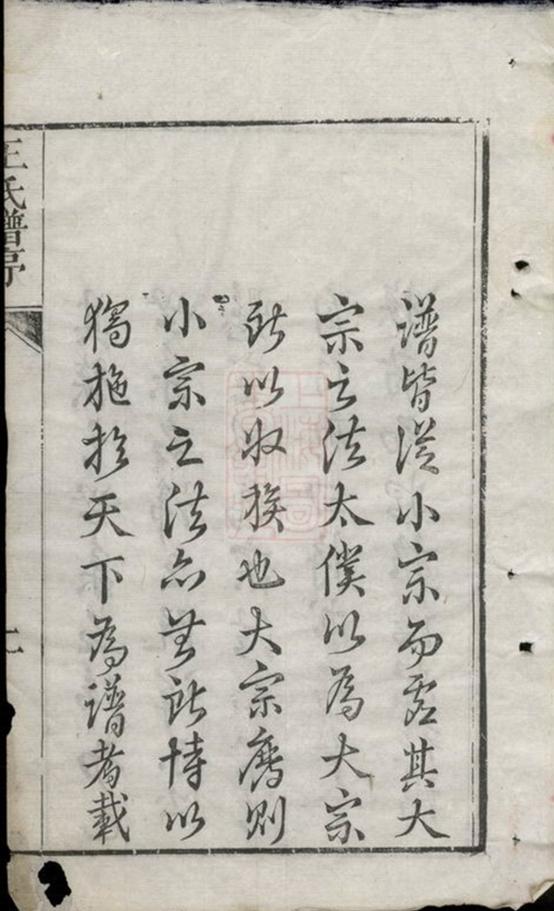 譜皆從小宗而虛其大
宗之法太僕以為大宗
所以收族也大宗廢則
小宗之法亦無所恃以
獨施於天下為譜者載
王氏譜序